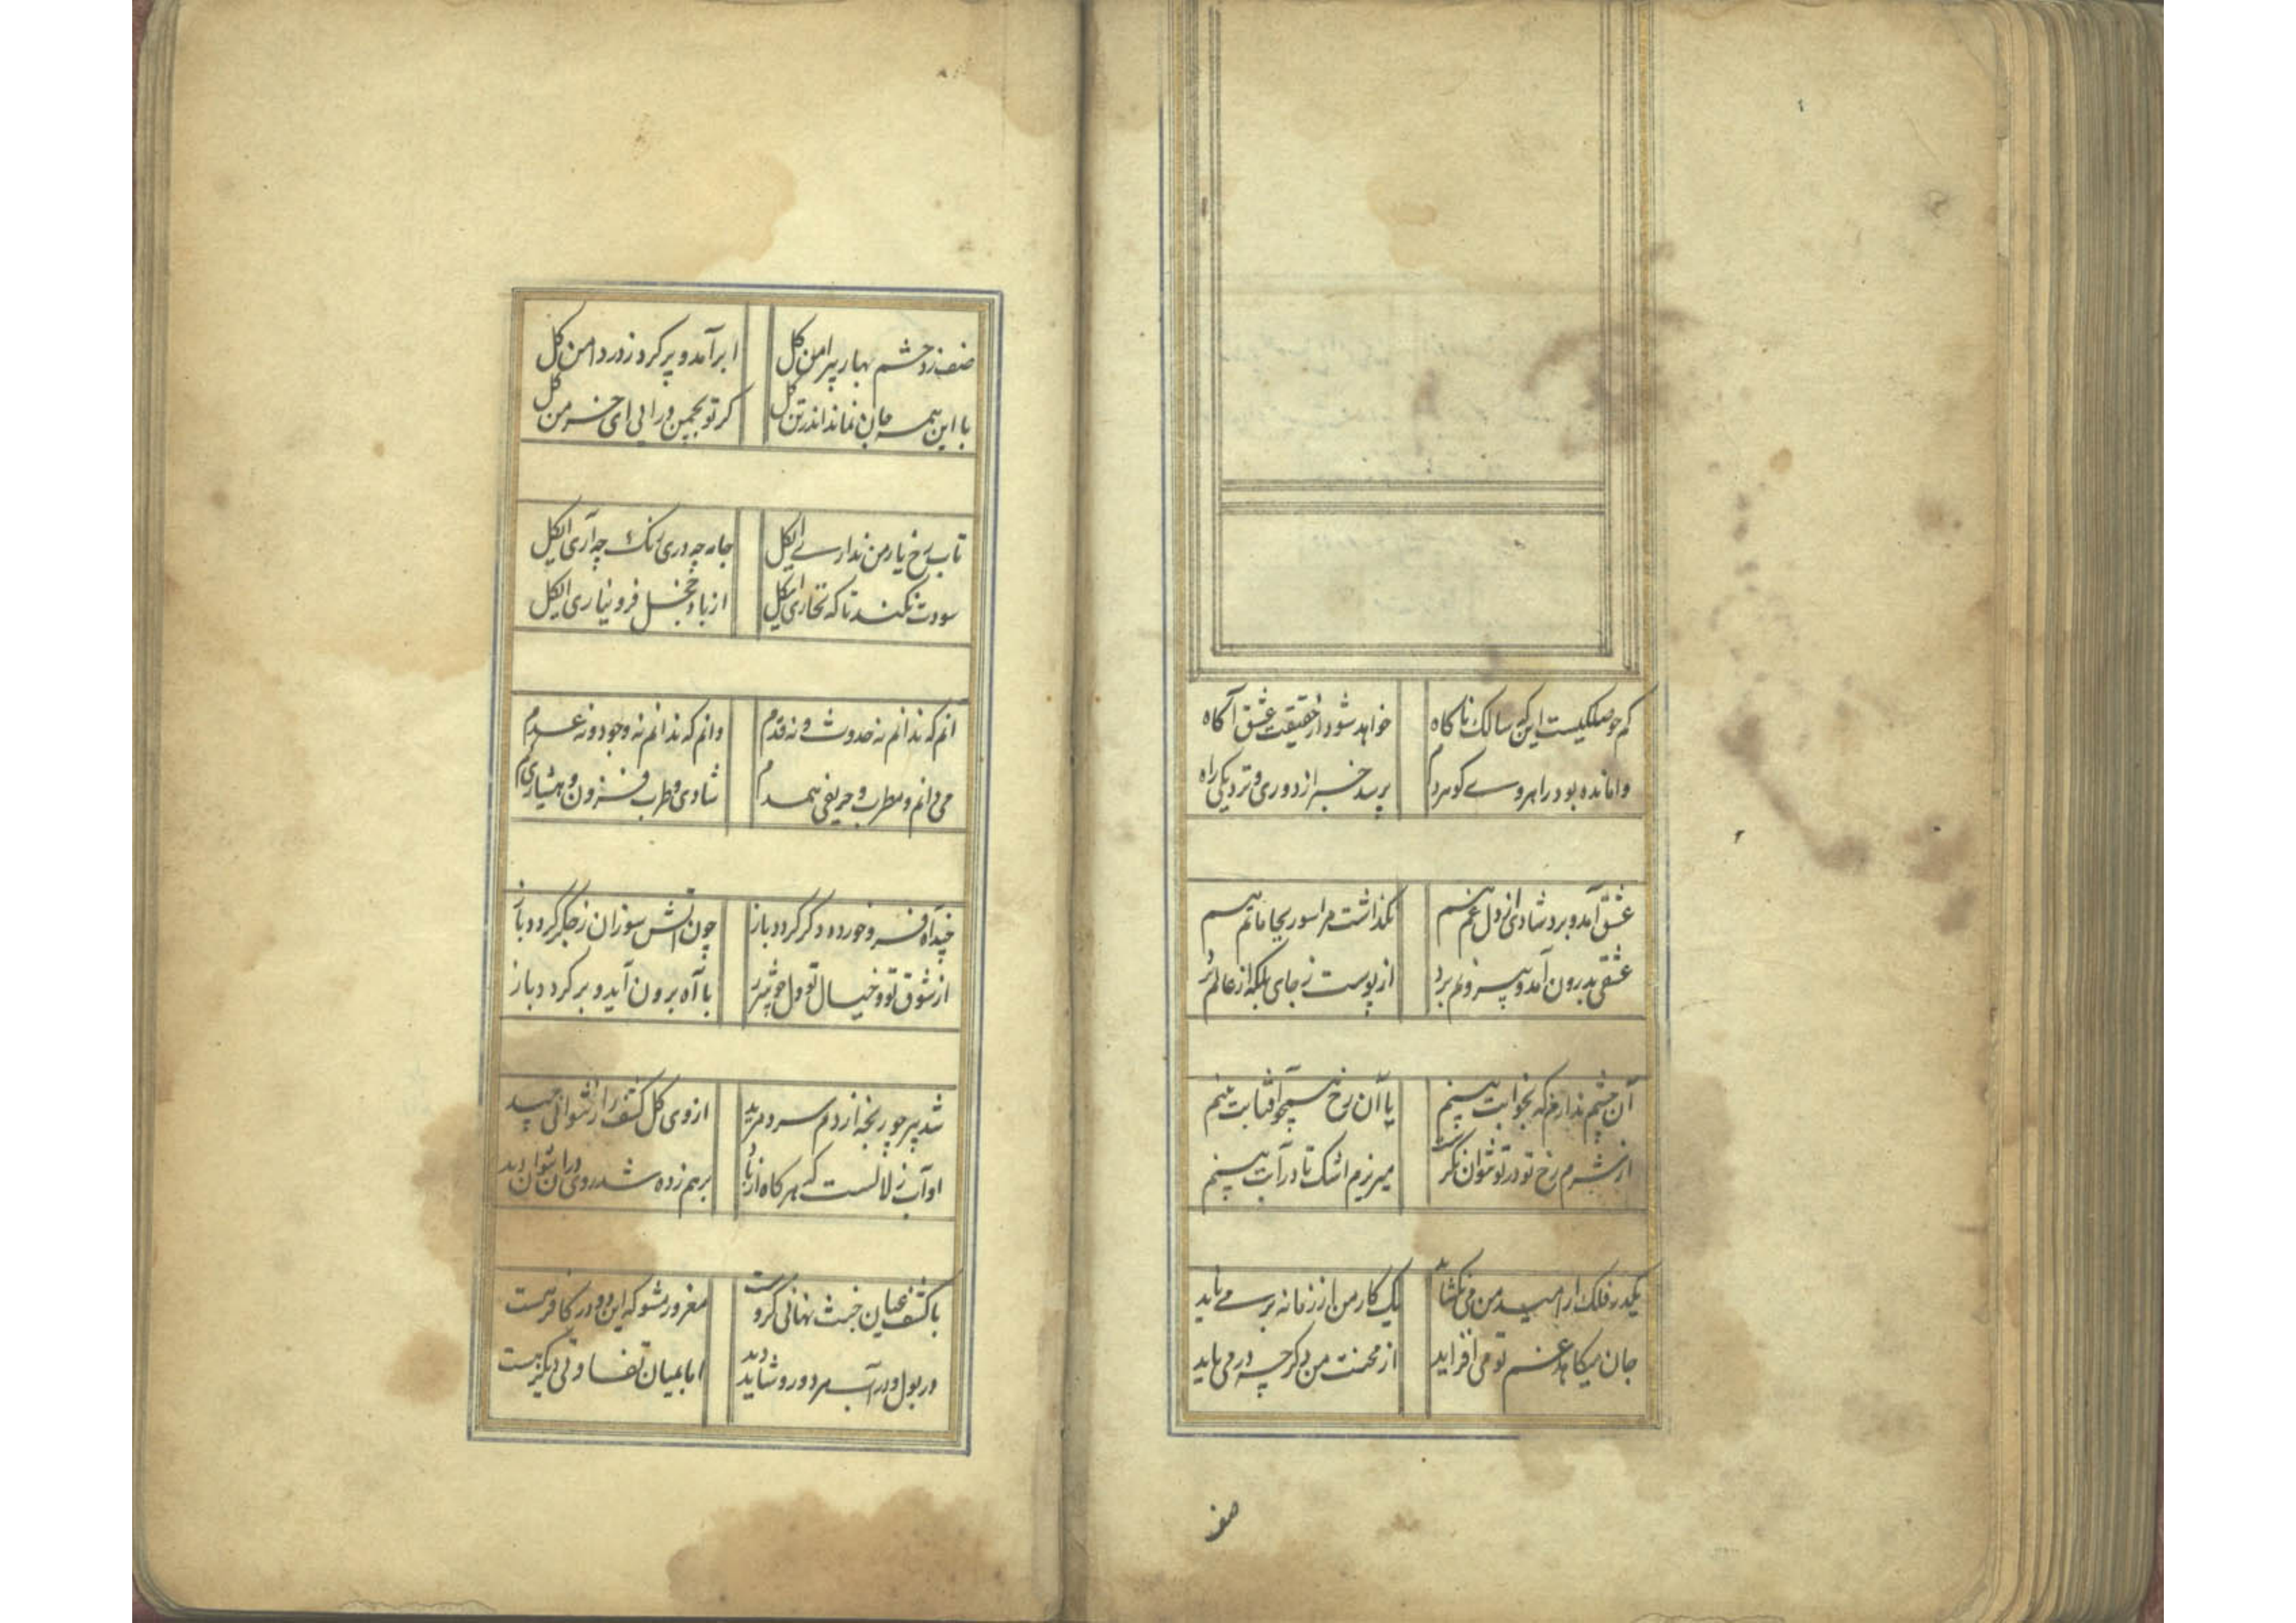 کم حوصلگیست این که سالک ناگاه خواهد شود از حقیقت عشق آگاه
وامانده بود راهروے کو هر دم پرسد خبر از دوری و نزدیکی راه
عشق آمد و برد شادی از دل غم هم نگذاشت مرا سور بجا ماتم هم
عشقی بدرون آمد و بیرونم برد از پوست ز جای بلکه از عالم هم
آن چشم ندارم که بخوابت بینم یا آن رخ همچو آفتابت بینم
از شرم رخ تو در تو نتوان نگریست میریزم اشک تا در آبت بینم
یکدر فلک از امید من می نگشاید یک کار من از زمانه بر می ناید
جان میکاهد غم تو می افزاید از محنت من دگر چه در می باید
صف
صف زد حشم بهار پیرامن گل ابر آمد و پر کرد ز در دامن گل
با این همه جان نماند اندر تن گل گر تو بچمن درایی ای خرمن گل
تاب رخ یار من ندارے ایگل جامه چه دری رنگ چه آری ایگل
سودت نکند تا که بخاری ایگل از باد خجل فرو نیاری ایگل
انم که ندانم نه حدوث و نه قدم وانم که ندانم نه وجود و نه عدم
می دانم و مطرب و حریفی همدم شادی و طرب فزون و هشیاری کم
آه فرو خورده دگر گردد باز چون آتش سوزان ز جگر گردد باز
از شوق تو و خیال تو دل با آه برون آید و بر گردد باز
شد پیر چو رنجه از دم سرد مرید از وی گل کشف راز نتوانی چید
او آب زلالست که هر گاه از باد برهم زده شد روی در آن نتوان دید
با کشف عیان خبث نهانی گروست مغرور مشو که این در کافر هست
در بول و در آب مرد و رو شاید دید اما بمیان تفاوتی دیگر هست